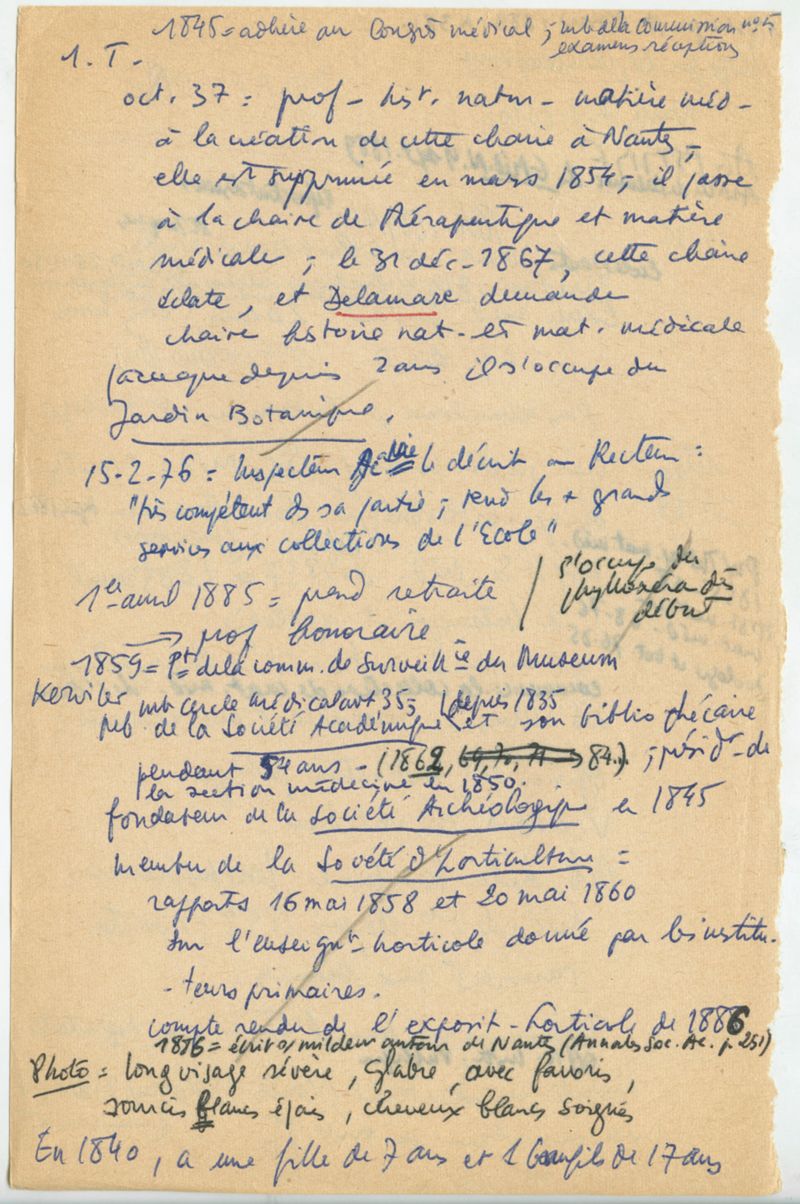 1845 = adhère au Congrès médical ; mb de la Commission n° 5
examens réceptions
1. T.
oct. 37 = prof - hist. natur - matière méd -
à la création de cette chaire à Nantes ;
elle est supprimée en mars 1854 ; il passe
à la chaire de thérapeutique et matière
médicale ; le 31 déc - 1867, cette chaire
éclate, et Delamare demande
chaire histoire nat - et mat. médicale
parceque depuis 2 ans il s'occupe du
Jardin Botanique.
15-2-76 = Inspecteur le décrit au Recteur :
"très compétent ds sa partie ; rend les + grands
services aux collections de l'Ecole"
1er avril 1885 = prend retraite
s'occupe du
phylloxéra dès
début
→ prof honoraire
1859 = Pt de la comm. de Surveillce du Museum
Kerviler, mb cercle médical avt 35 ; depuis 1835
mb. de la Société Académique et son bibliothécaire
pendant 54 ans - (1862, 84) ; présidt de
la section médecine en 1850.
fondateur de la Société Archéologiq en 1845
membre de la Société d'horticulture =
rapports 16 mai 1858 et 20 mai 1860
sur l'enseignt horticole donné par les institu-
- teurs primaires.
compte rendu de l'exposit - horticole de 1886
1886 = écrit s/ mildew autour de Nantes (Annales Soc. Ac. p. 251)
Photo = long visage sévère, glabre, avec favoris,
sourcils blancs épais, cheveux blancs soignés
En 1840, a une fille de 7 ans et 1 fils de 17 ans